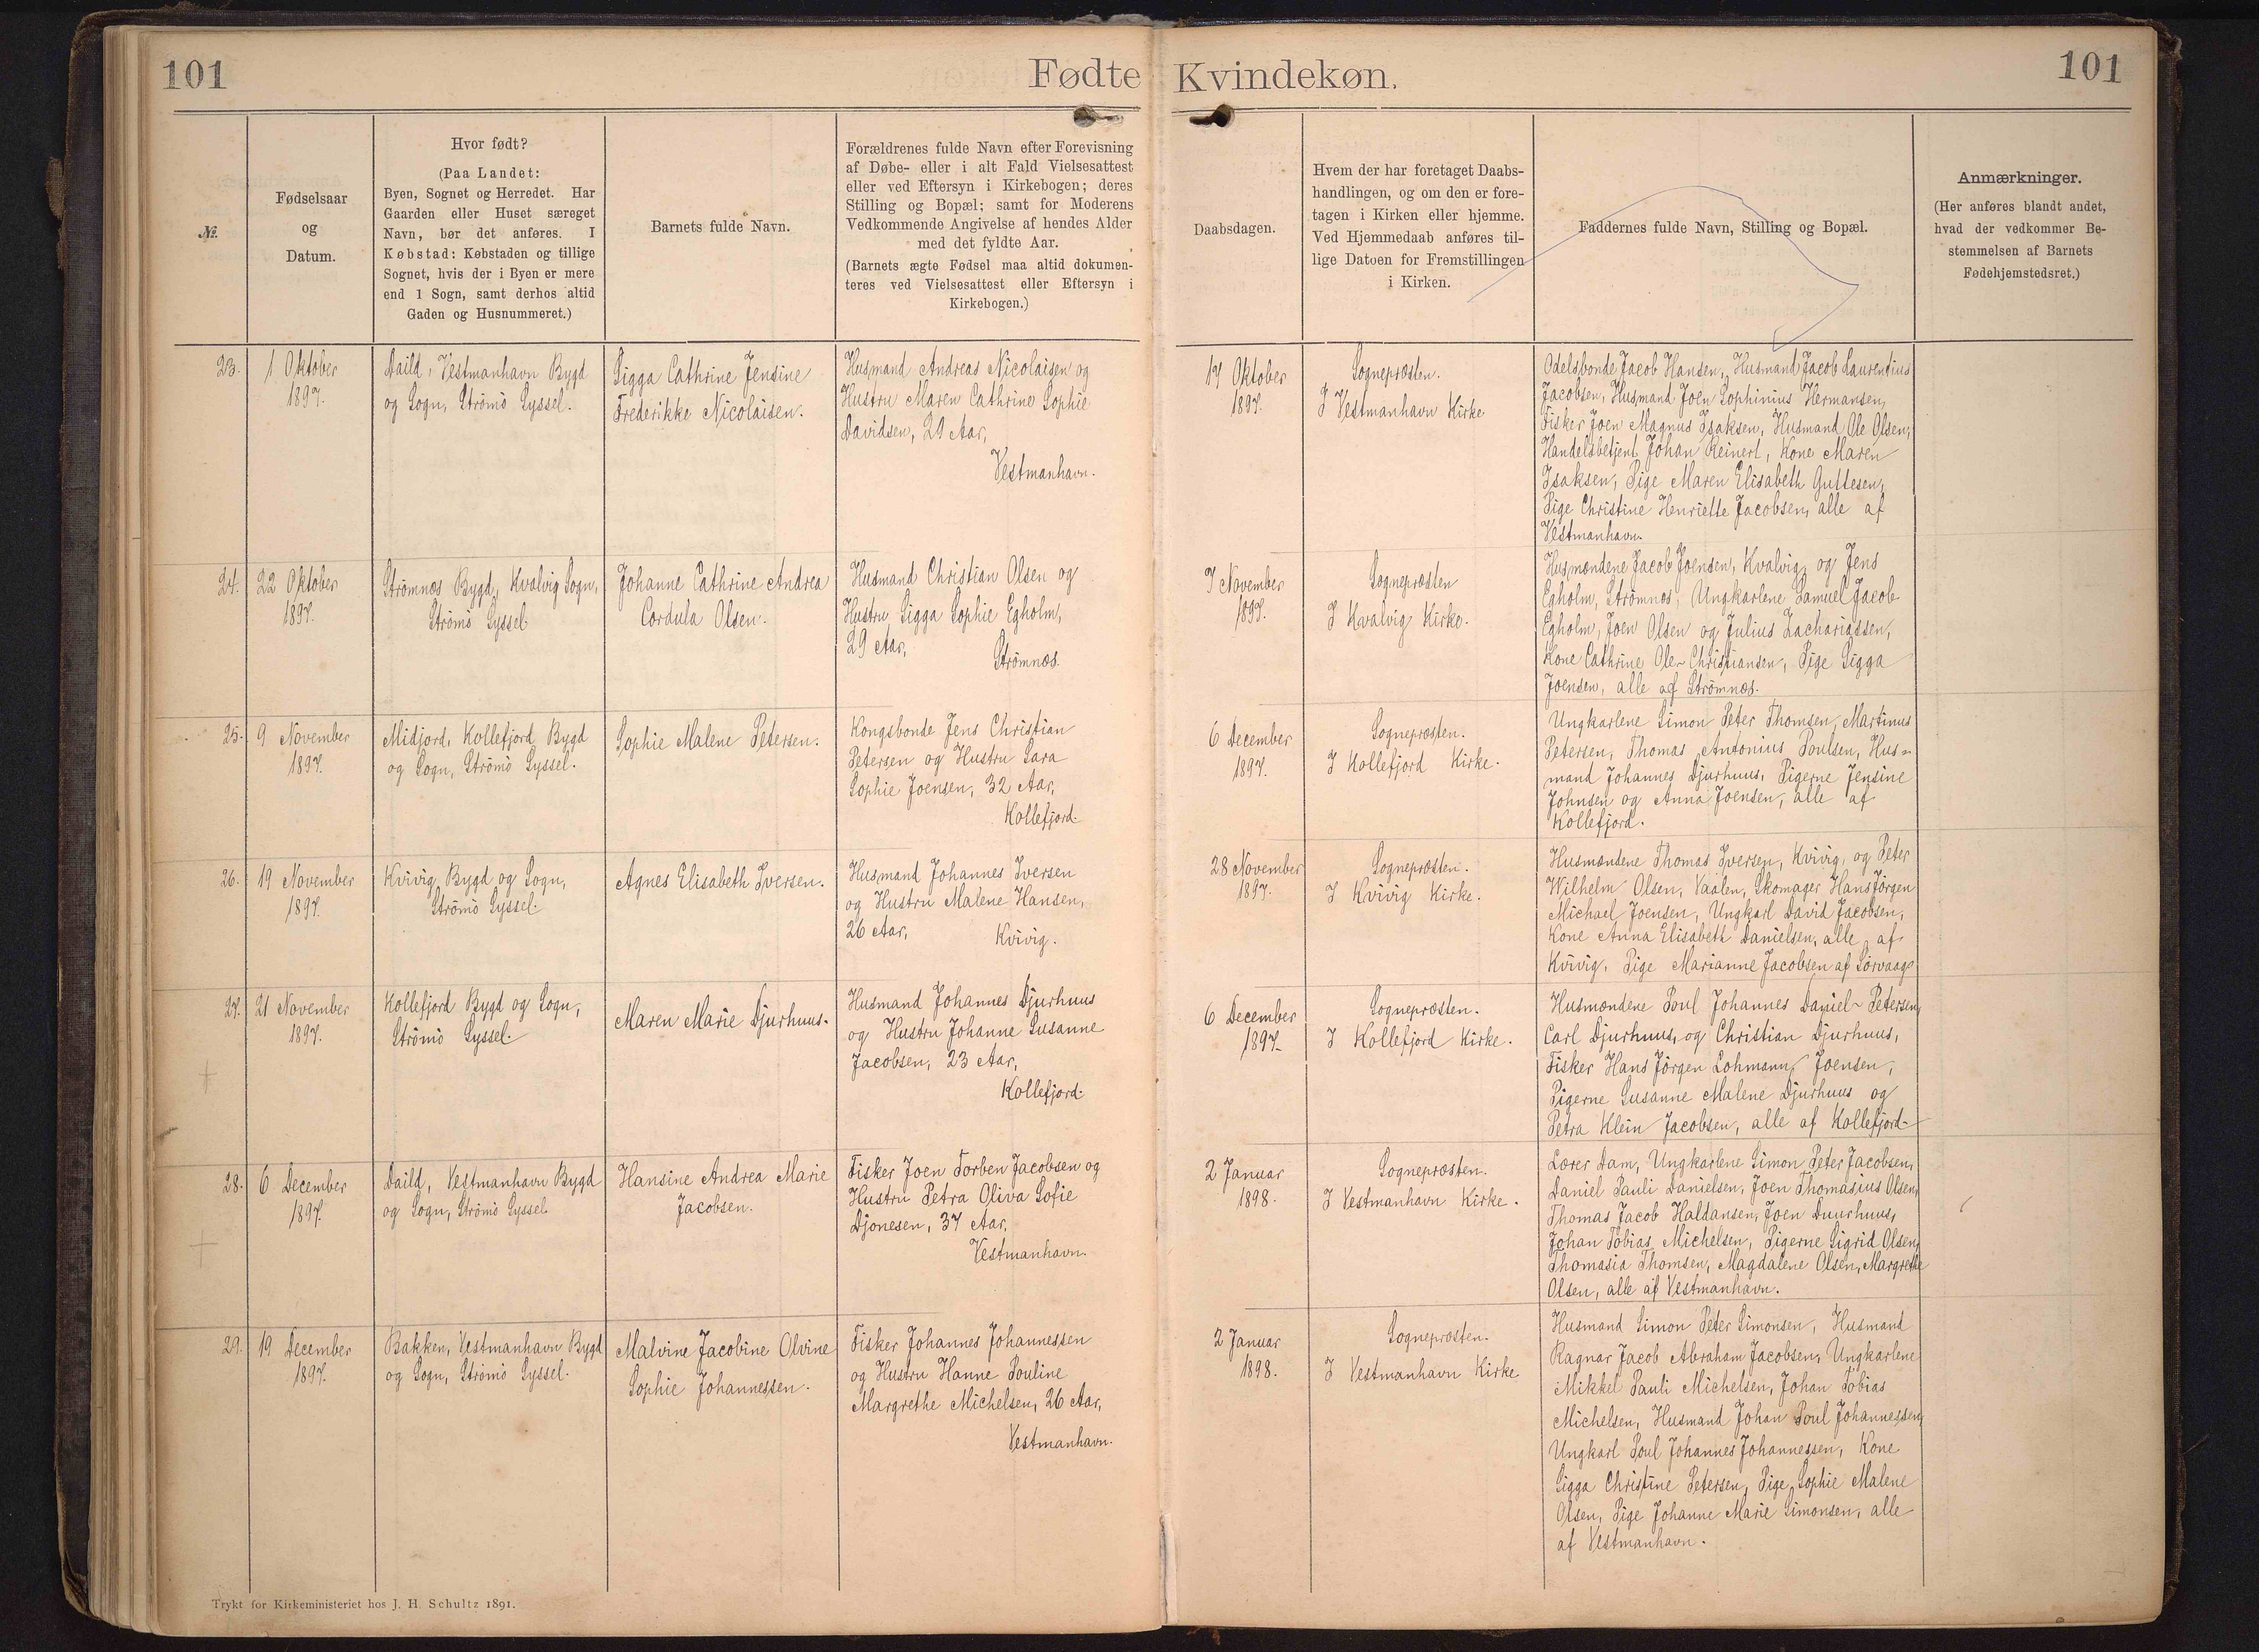 101
Fødte
Kvindekøn.
101
№.
Fødselsaar
og
Datum.
Hvor født?
(Paa Landet:
Byen, Sognet og Herredet. Har
Gaarden eller Huset særeget
Navn, bør det anføres. I
Købstad: Købstaden og tillige
Sognet, hvis der i Byen er mere
end 1 Sogn, samt derhos altid
Gaden og Husnummeret.)
Barnets fulde Navn.
Forældrenes fulde Navn efter Forevisning
af Døbe- eller i alt Fald Vielsesattest
eller ved Eftersyn i Kirkebogen; deres
Stilling og Bopæl; samt for Moderens
Vedkommende Angivelse af hendes Alder
med det fyldte Aar.
(Barnets ægte Fødsel maa altid dokumen-
teres ved Vielsesattest eller Eftersyn i
Kirkebogen.)
Daabsdagen.
Hvem der har foretaget Daabs-
handlingen, og om den er fore-
tagen i Kirken eller hjemme.
Ved Hjemmedaab anføres til-
lige Datoen for Fremstillingen
i Kirken.
Faddernes fulde Navn, Stilling og Bopæl.
Anmærkninger.
(Her anføres blandt andet,
hvad der vedkommer Be-
stemmelsen af Barnets
Fødehjemstedsret.)
23.
1 Oktober
1897.
Daild, Vestmanhavn Bygd
og Sogn, Strömö Syssel.
Sigga Cathrine Jensine
Frederikke Nicolaisen.
Husmand Andreas Nicolaisen og
Hustru Maren Cathrine Sophie
Davidsen, 29 Aar,
Vestmanhavn.
17 Oktober
1897.
Sognepræsten.
I Vestmanhavn Kirke
Odelsbonde Jacob Hansen, Husmand Jacob Laurentius
Jacobsen, Husmand Joen Sophinius Hermansen,
Fisker Joen Magnus Isaksen, Husmand Ole Olsen,
Handelsbetjent Johan Reinert, Kone Maren
Isaksen, Pige Maren Elisabeth Guttesen,
Pige Christine Henriette Jacobsen, alle af
Vestmanhavn.
24.
22 Oktober
1897.
Strömnæs Bygd, Kvalvig Sogn,
Strömö Syssel.
Johanne Cathrine Andrea
Cordula Olsen.
Husmand Christian Olsen og
Hustru Sigga Sophie Egholm,
29 Aar,
Strömnæs.
7 November
1897.
Sognepræsten
I Kvalvig Kirke.
Husmændene Jacob Joensen, Kvalvig, og Jens
Egholm, Strömnæs, Ungkarlene Samuel Jacob
Egholm, Joen Olsen og Julius Zachariassen,
Kone Cathrine Ole Christiansen, Pige Sigga
Joensen, alle af Strömnæs.
25.
9 November
1897.
Midjord, Kollefjord Bygd
og Sogn, Strömö Syssel.
Sophie Malene Petersen.
Kongsbonde Jens Christian
Petersen og Hustru Sara
Sophie Joensen, 32 Aar,
Kollefjord.
6 December
1897.
Sognepræsten.
I Kollefjord Kirke.
Ungkarlene Simon Peter Thomsen, Martinus
Petersen, Thomas Antonius Poulsen, Hus-
mand Johannes Djurhuus, Pigerne Jensine
Johnsen og Anna Joensen, alle af
Kollefjord.
26.
19 November
1897.
Kvivig Bygd og Sogn,
Strömö Syssel.
Agnes Elisabeth Iversen.
Husmand Johannes Iversen
og Hustru Malene Hansen,
26 Aar,
Kvivig.
28 November
1897.
Sognepræsten.
I Kvivig Kirke.
Husmændene Thomas Iversen, Kvivig, og Peter
Wilhelm Olsen, Vaalen, Skomager Hans Jörgen
Michael Joensen, Ungkarl David Jacobsen,
Kone Anna Elisabeth Danielsen, alle af
Kvivig. Pige Marianne Jacobsen af Sörvaag
27.
21 November
1897.
Kollefjord Bygd og Sogn,
Strömö Syssel.
Maren Marie Djurhuus.
Husmand Johannes Djurhuus
og Hustru Johanne Susanne
Jacobsen, 23 Aar,
Kollefjord.
6 December
1897.
Sognepræsten.
I Kollefjord Kirke.
Husmændene Poul Johannes Daniel Petersen,
Carl Djurhuus, og Christian Djurhuus,
Fisker Hans Jörgen Lohmann Joensen,
Pigerne Susanne Malene Djurhuus og
Petra Klein Jacobsen, alle af Kollefjord.
28.
6 December
1897.
Daild, Vestmanhavn Bygd
og Sogn, Strömö Syssel
Hansine Andrea Marie
Jacobsen.
Fisker Joen Torben Jacobsen og
Hustru Petra Oliva Sofie
Djonesen, 37 Aar,
Vestmanhavn.
2 Januar
1898.
Sognepræsten.
I Vestmanhavn Kirke.
Lærer Dam, Ungkarlene Simon Peter Jacobsen,
Daniel Pauli Danielsen, Joen Thomasius Olsen,
Thomas Jacob Haldansen, Joen Duurhuus,
Johan Tobias Michelsen, Pigerne Sigrid Olsen,
Thomasia Thomsen, Magdalene Olsen, Margrethe
Olsen, alle af Vestmanhavn.
29.
19 December
1897.
Bakken, Vestmanhavn Bygd
og Sogn, Strömö Syssel.
Malvine Jacobine Olvine
Sophie Johannessen.
Fisker Johannes Johannessen
og Hustru Hanne Pouline
Margrethe Michelsen, 26 Aar,
Vestmanhavn.
2 Januar
1898.
Sognepræsten.
I Vestmanhavn Kirke
Husmand Simon Peter Simonsen, Husmand
Ragnar Jacob Abraham Jacobsen, Ungkarlene
Mikkel Pauli Michelsen, Johan Tobias
Michelsen, Husmand Johan Poul Johannessen,
Ungkarl Poul Johannes Johannessen, Kone
Sigga Christine Petersen, Pige Sophie Malene
Olsen, Pige Johanne Marie Simonsen, alle
af Vestmanhavn.
Trykt for Kirkeministeriet hos J. H. Schultz 1891.